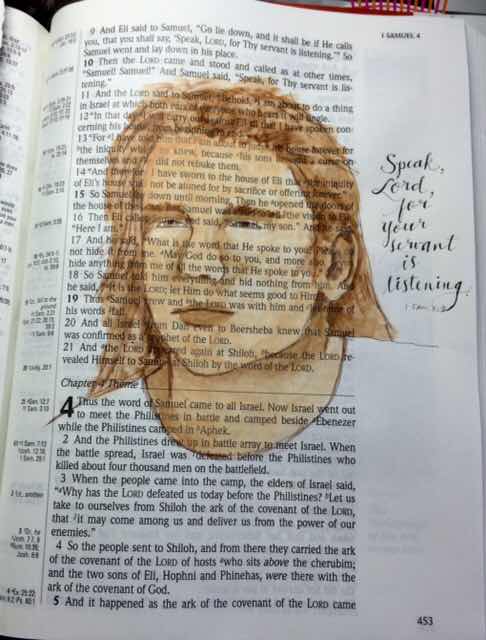 1 SAMUEL 4
9 And Eli said to Samuel, “Go lie down, and it shall be if He calls
you, that you shall say, ‘Speak, LORD, for Thy servant is listening.’” So
Samuel went and lay down in his place.
10 Then the LORD came and stood and called as at other times,
“Samuel! Samuel!” And Samuel said, “Speak, for Thy servant is lis-
tening.”
11 And the LORD said to Samuel, “Behold, I am about to do a thing
in Israel at which both ears of everyone who hears it will tingle.
12 “In that day I will carry out against Eli all that I have spoken con-
cerning his house, from beginning to end.
13 “For I have told him that I am about to judge his house forever for
the iniquity which he knew, because his sons brought a curse on
themselves and he did not rebuke them.
14 “And therefore I have sworn to the house of Eli that the iniquity
of Eli's house shall not be atoned for by sacrifice or offering forever.”
15 So Samuel lay down until morning. Then he opened the doors of
the house of the LORD. But Samuel was afraid to tell the vision to Eli.
16 Then Eli called Samuel and said, “Samuel, my son.” And he said,
“Here I am.”
17 And he said, “What is the word that He spoke to you? Please do
not hide it from me. May God do so to you, and more also, if you
hide anything from me of all the words that He spoke to you.”
18 So Samuel told him everything and hid nothing from him. And
he said, “It is the LORD; let Him do what seems good to Him.”
19 Thus Samuel grew and the LORD was with him and let none of
his words fail.
20 And all Israel from Dan even to Beersheba knew that Samuel
was confirmed as a prophet of the LORD.
21 And the LORD appeared again at Shiloh, because the LORD re-
vealed Himself to Samuel at Shiloh by the word of the LORD.
Chapter 4 Theme
4 Thus the word of Samuel came to all Israel. Now Israel went out
to meet the Philistines in battle and camped beside Ebenezer
while the Philistines camped in Aphek.
2 And the Philistines drew up in battle array to meet Israel. When
the battle spread, Israel was defeated before the Philistines who
killed about four thousand men on the battlefield.
3 When the people came into the camp, the elders of Israel said,
“Why has the LORD defeated us today before the Philistines? Let us
take to ourselves from Shiloh the ark of the covenant of the LORD,
that it may come among us and deliver us from the power of our
enemies.”
4 So the people sent to Shiloh, and from there they carried the ark
of the covenant of the LORD of hosts who sits above the cherubim;
and the two sons of Eli, Hophni and Phinehas, were there with the
ark of the covenant of God.
5 And it happened as the ark of the covenant of the LORD came
Speak,
Lord,
for
your
servant
is
listening.
453